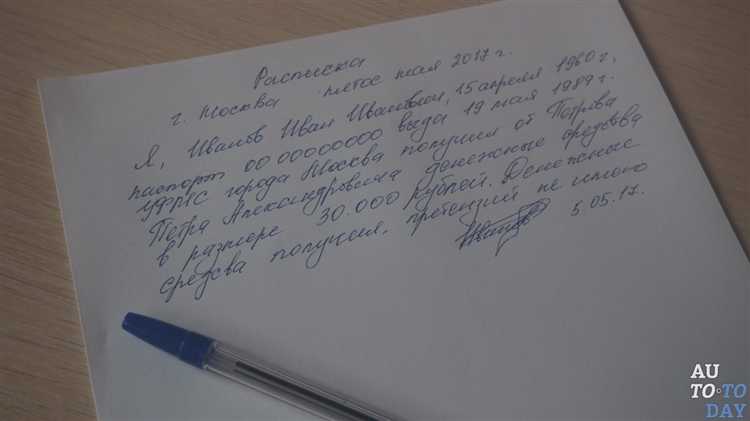 Расписка
г. Москва пятое мая 2017 г.
Я, Иванов Иван Иванович, 15 апреля 1960 г,
паспорт 00 00000000 выдан 19 мая 1989 г.
УФМС города Москва получил от Петрова
Петра Александровича денежные средства
в размере 30.000 рублей. Денежные
средсва получил, претензий не имею
5.05.17.
AU
TO·TO
DAY